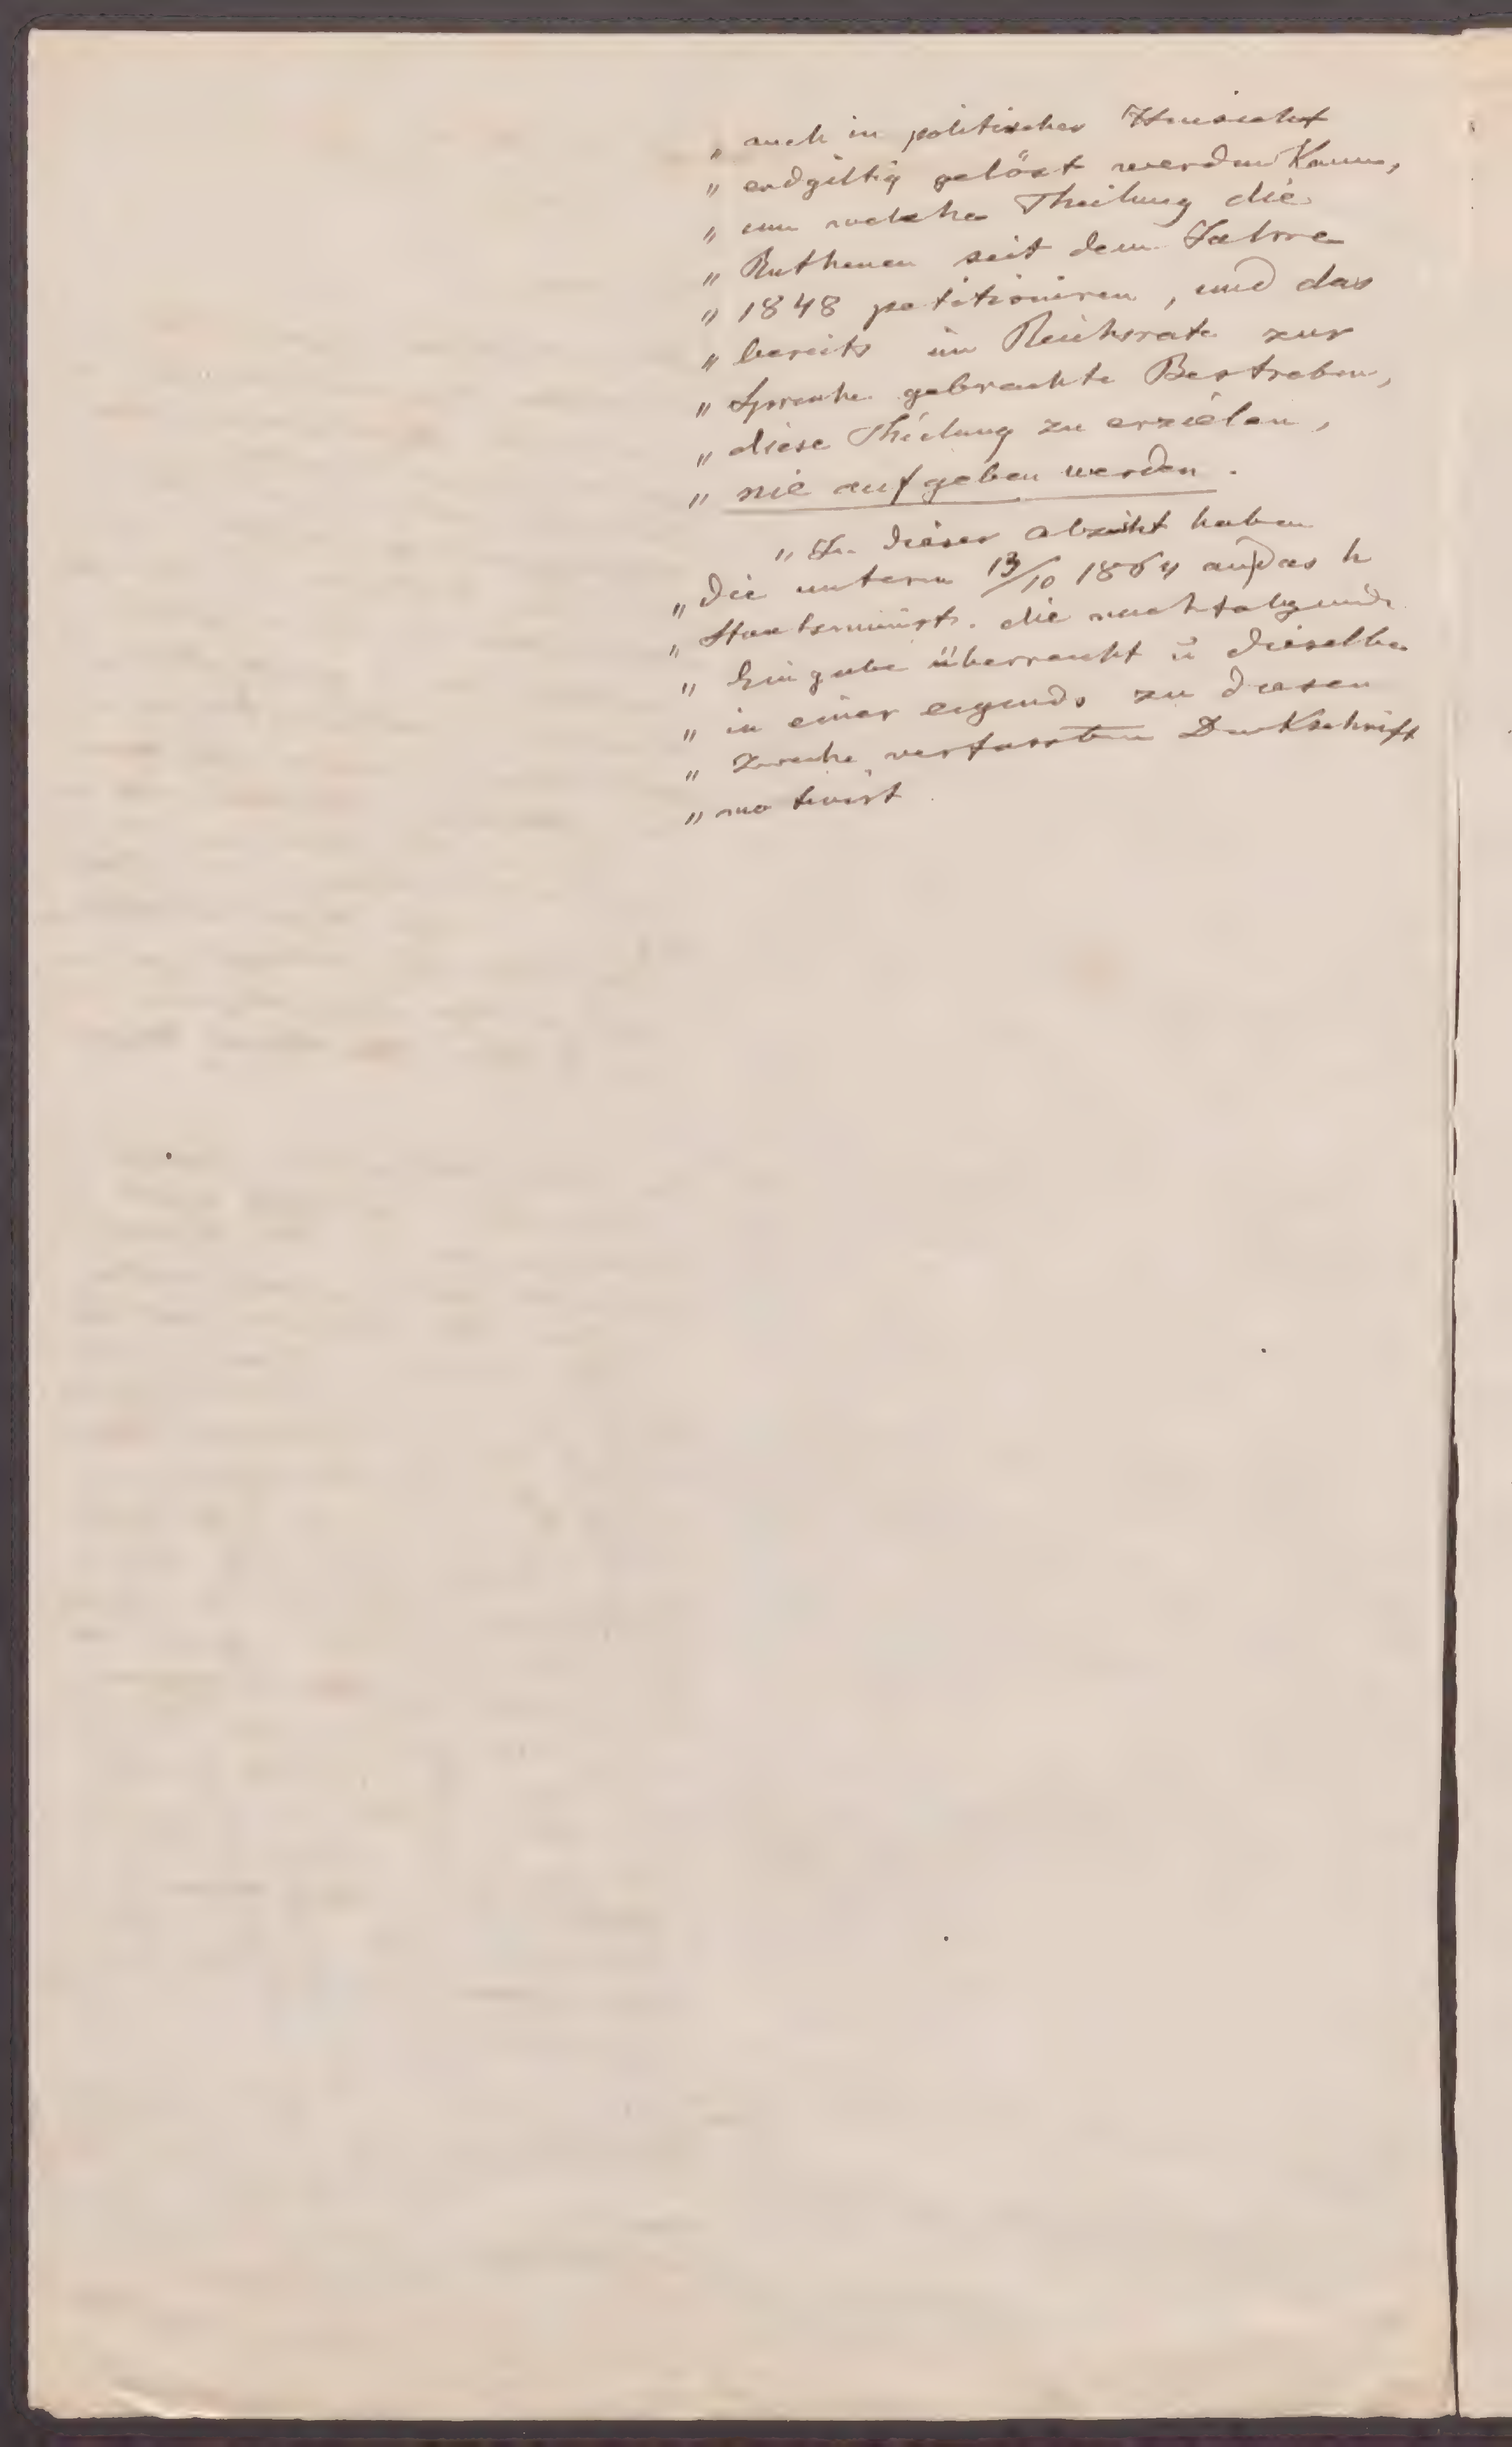 „ auch in politischer Hinsicht
„ endgiltig gelöst werden kann,
„ um welche Theilung die
„ Ruthenen seit dem Jahre
„ 1848 petitioniren, und das
„ bereits im Reichsrate zur
„ Sprache gebrachte Bestreben,
„ diese Theilung zu erzielen,
„ nie aufgeben werden.
„ In dieser Absicht haben
„ die unterm 13/10 1864 an das h
„ Staatsminist. die nachfolgende
„ Eingabe überreicht u dieselbe
„ in einer eigends zu diesem
„ Zwecke verfassten Denkschrift
„ motivirt